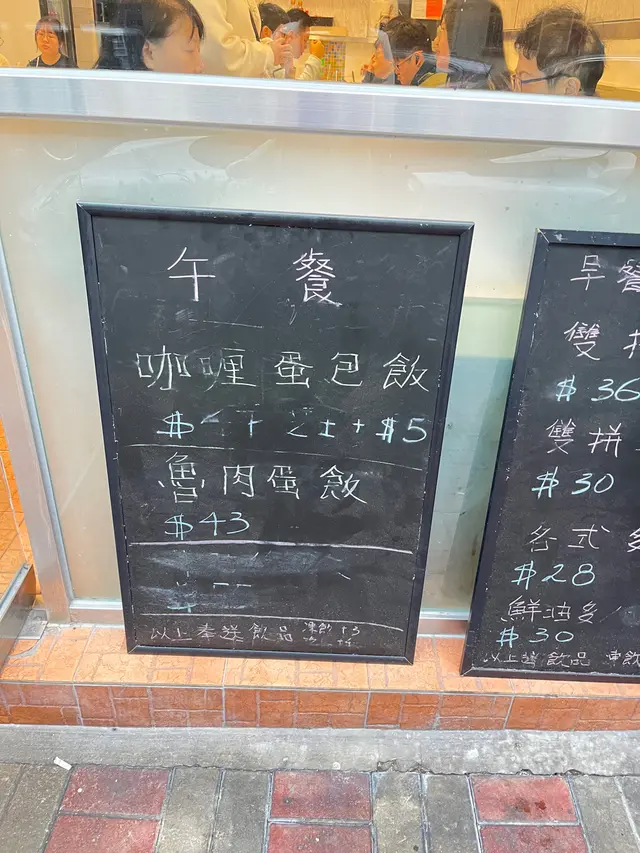 午餐
咖喱蛋包飯
$ 芝士+$5
魯肉蛋飯
$43
以上奉送飲品 凍飲
早餐
雙拼
$36
雙拼
$30
各式
$28
鮮油多
$30
以上 飲品 凍飲